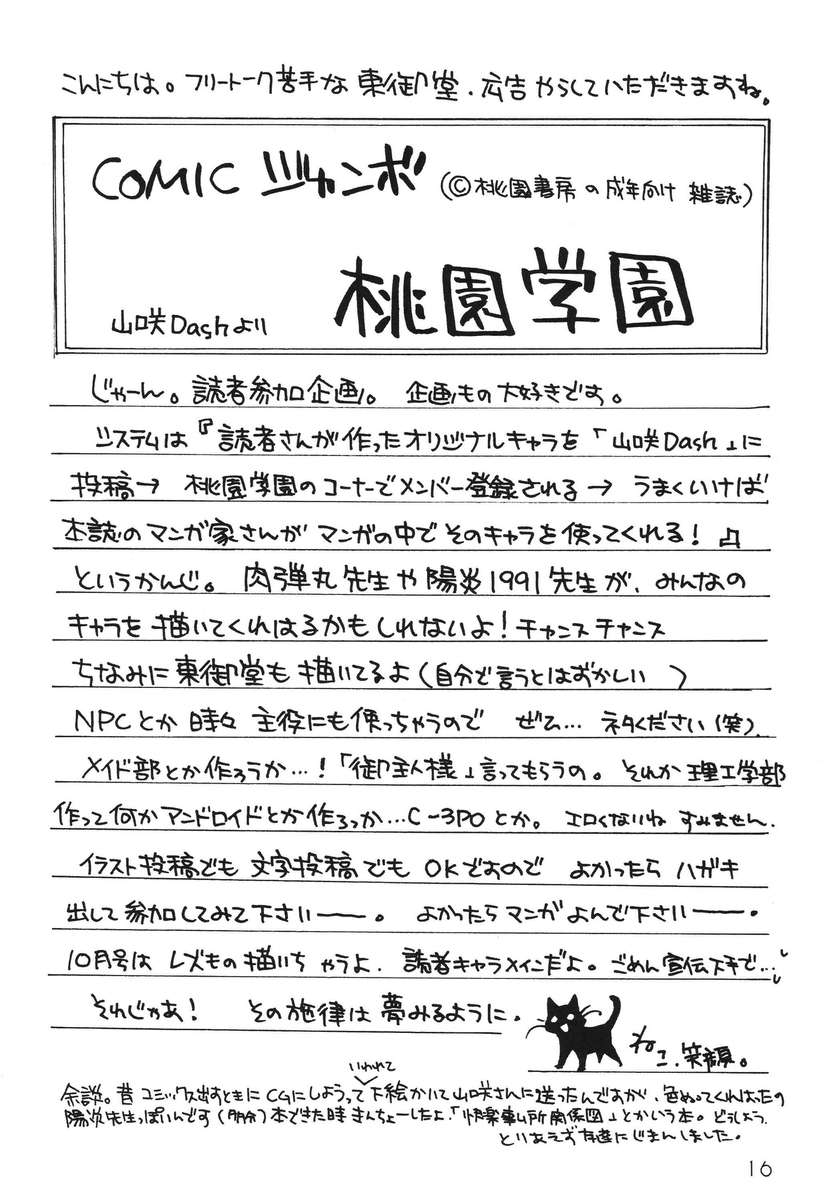 こんにちは。フリートーク苦手な東御堂、広告やらしていただきますね。
COMIC ジャンボ (©桃園書房の成年向け 雑誌)
山咲Dashより 桃園学園
じゃーん。読者参加企画。 企画もの大好きです。
システムは『読者さんが作ったオリジナルキャラを「山咲Dash」に
投稿→ 桃園学園のコーナーでメンバー登録される→ うまくいけば
本誌のマンガ家さんが マンガの中でそのキャラを使ってくれる!』
というかんじ。 肉弾丸先生や陽炎1991先生が、みんなの
キャラを描いてくれはるかもしれないよ!チャンスチャンス
ちなみに東御堂も描いてるよ(自分で言うとはずかしい )
NPCとか 時々 主役にも使っちゃうので ぜひ… ネタください(笑)
メイド部とか作ろうか…!「御主人様」言ってもらうの。それか 理工学部
作って何かアンドロイドとか作ろっか…C-3POとか。 エロくないね すみません.
イラスト投稿でも文字投稿でもOKですので よかったら ハガキ
出して参加してみて下さいー。 よかったらマンガよんで下さいー.
10月号は レズもの描いちゃうよ. 読者キャラメインだよ。ごめん宣伝下手で…
それじゃあ! その旋律は夢みるように.
ねこ.笑顔。
余談。昔 コミックス出すときにCGにしようっていわれて下絵かいて山咲さんに送ったんですが、色ぬってくれはったの
陽炎先生っぽいんです(多分)本できた時きんちょーしたよ.「快楽事ム所関係図」とかいう本。どうしよう.
とりあえず友達にじまんしました。
16